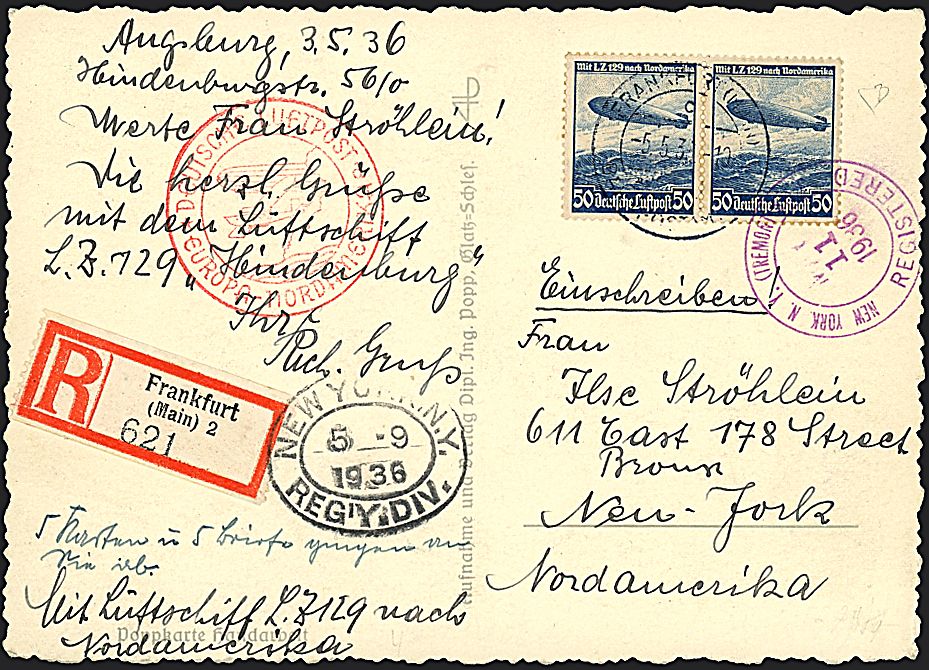 Augsburg, 3.5.36
Hindenburgstr. 56/0
Werte Frau Ströhlein!
Die herzl. Grüße
mit dem Luftschiff
L.Z. 129 „Hindenburg"
Ihr
Rich. Gruß
DEUTSCHE LUFTPOST
EUROPA NORDAMERIKA
R
Frankfurt
(Main) 2
621
NEW YORK, N.Y.
5 -9
1936
REG'Y. DIV.
5 Karten u 5 Briefe gingen an
Sie ab.
Mit Luftschiff L.Z 129 nach
Nordamerika
Popp Karte Handarbeit
Aufnahme und Verlag Dipl. Ing. Popp, Glatz-Schles.
Mit LZ 129 nach Nordamerika
50 Deutsche Luftpost 50
Mit LZ 129 nach Nordamerika
50 Deutsche Luftpost 50
FRANKFURT
-5.5.3
REGISTERED
11
1936
NEW YORK N. Y. (TREMONT
Einschreiben!
Frau
Ilse Ströhlein
611 East 178 Street
Bronx
New-York
Nordamerika